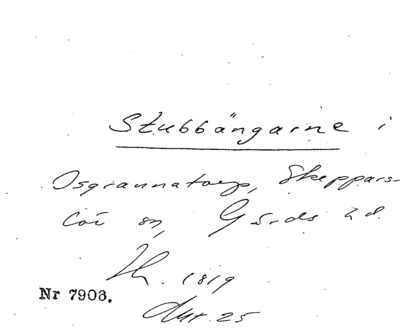 Stubbängarne i
Osgrannatorp, Skeppars-
löv sn, Gärds hd.
1819
Nr 7903.
Akt. 25